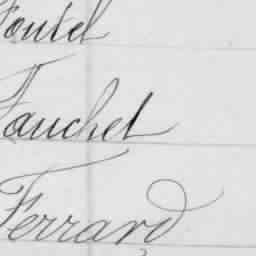 Foutel
Fauchet
Ferrard